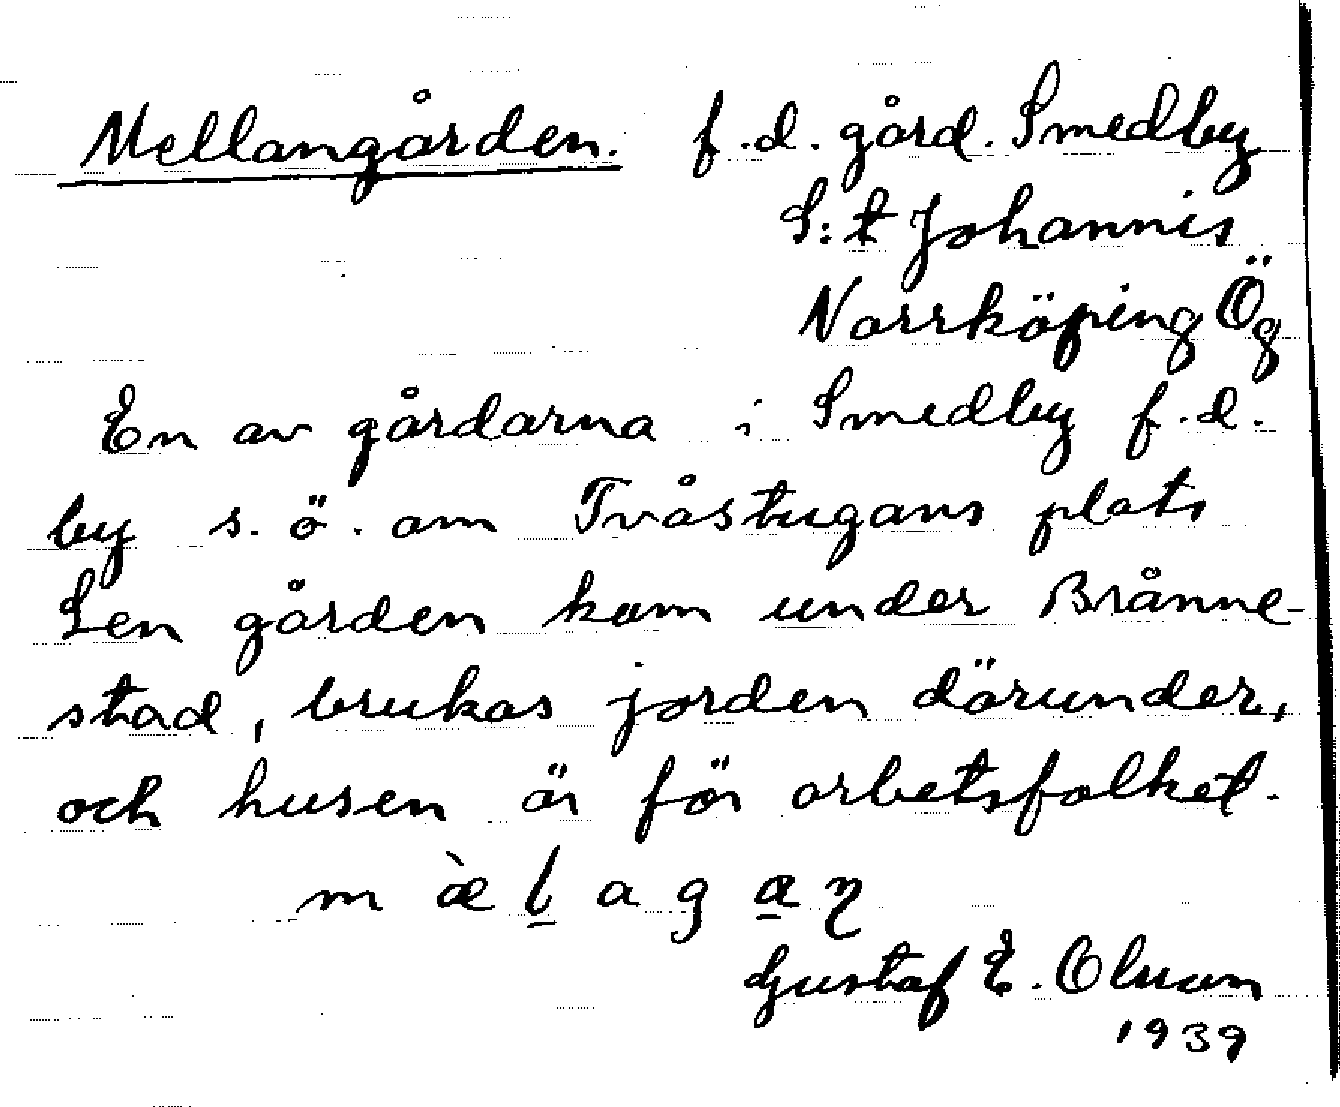 Mellangården. f.d. gård. Smedby
S:t Johannis
Norrköping Ög
En av gårdarna i Smedby f.d.
by s.ö. om Tvåstugans plats
Sen gården kom under Brånne-
stad, brukas jorden därunder,
och husen är för arbetsfolket.
m æ̀ l̲ a g a̲ η
Gustaf E. Olsson
1939